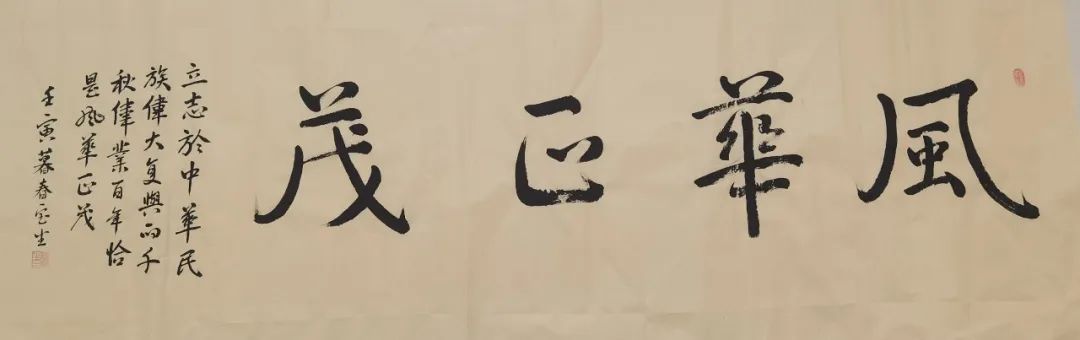 風華正茂
立志於中華民
族偉大复興的千
秋偉業百年恰
是風華正茂
壬寅暮春